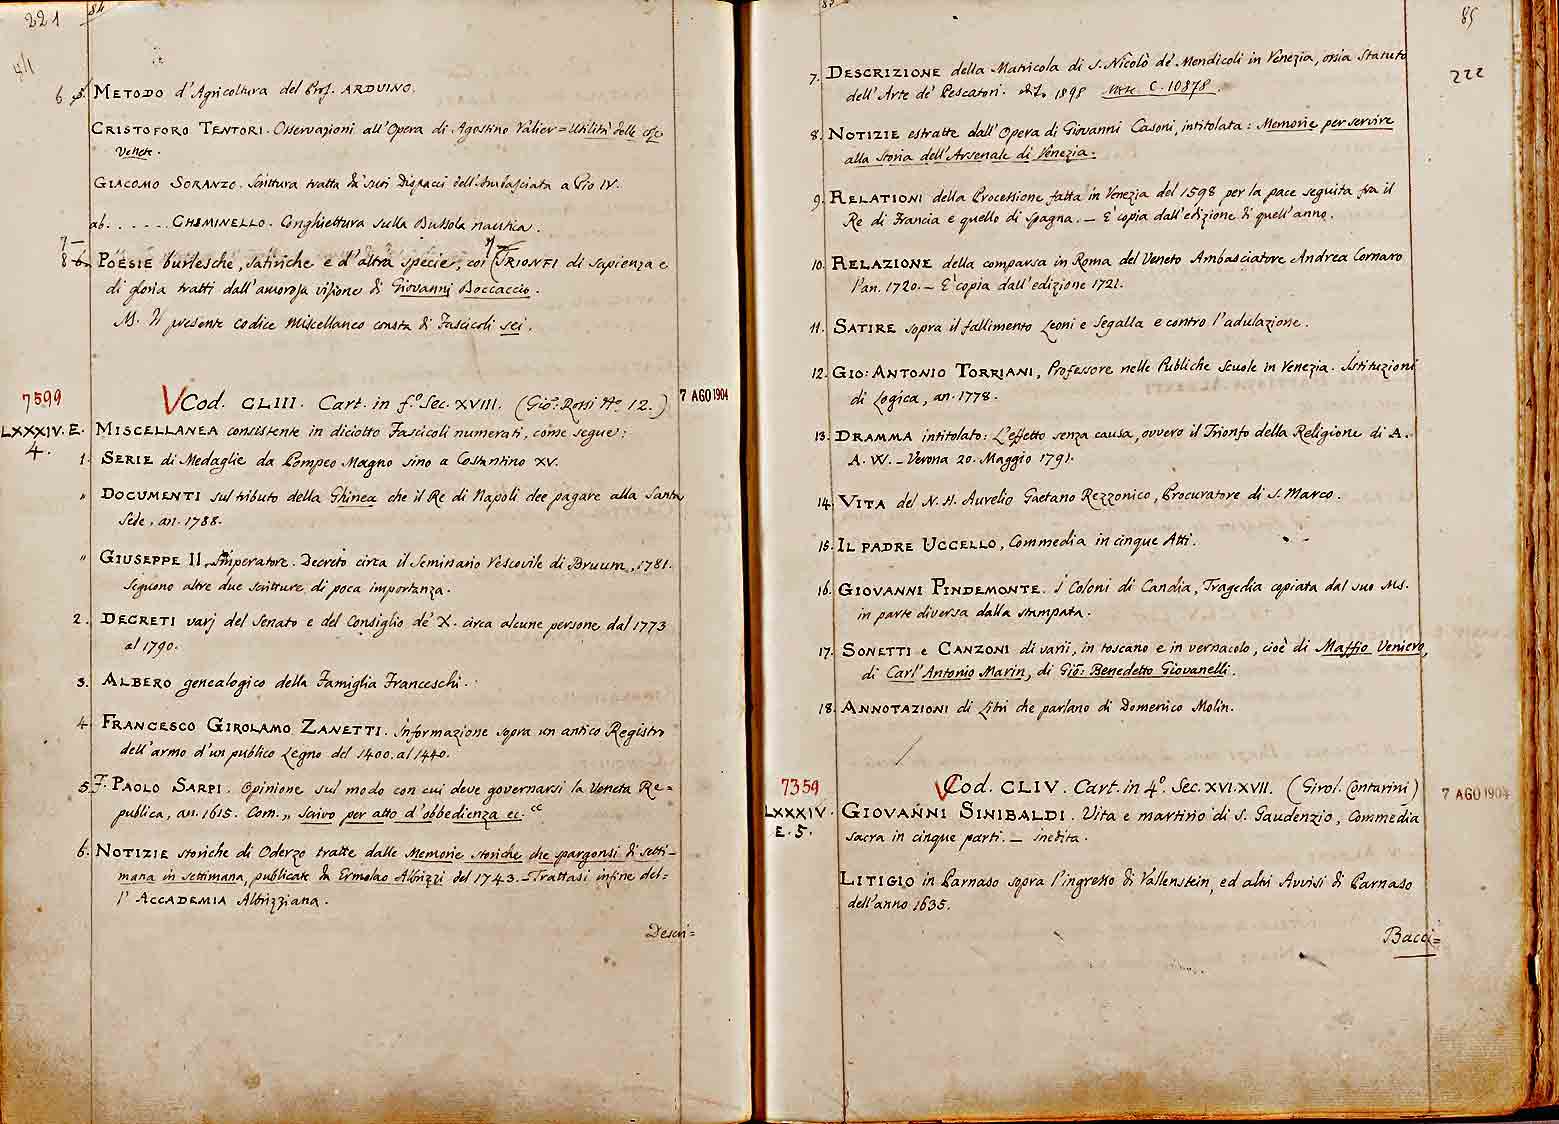 221
84
6 METODO d'Agricoltura del Prof. ARDUINO.
CRISTOFORO TENTORI. Osservazioni all'Opera di Agostino Valier = Utilità delle cose
Venete.
GIACOMO SORANZO. Scrittura tratta da' suoi Dispacci dell'Ambasciata a Pio IV.
ab. . . . . . CHEMINELLO. Conghiettura sulla Bussola nautica.
7 —
8 6. POESIE burlesche, satiriche e d'altra specie, coi TRIONFI di sapienza e
di gloria tratti dall'amorosa visione di Giovanni Boccaccio.
Il presente codice Miscellaneo consta di Fascicoli sei.
7599
VCod. CLIII. Cart. in f.º Sec. XVIII. (Gio: Rossi Nº 12.)
7 AGO 1904
LXXXIV. E.
4.
MISCELLANEA consistente in diciotto Fascicoli numerati, come segue:
1. SERIE di Medaglie da Pompeo Magno sino a Costantino XV.
" DOCUMENTI sul tributo della Ghinea che il Re di Napoli dee pagare alla Santa
Sede, an. 1788.
" GIUSEPPE II, Imperatore. Decreto circa il Seminario Vescovile di Bruum, 1781.
Seguono altre due scritture di poca importanza.
2. DECRETI varj del Senato e del Consiglio de' X. circa alcune persone dal 1773
al 1790.
3. ALBERO genealogico della Famiglia Franceschi.
4. FRANCESCO GIROLAMO ZANETTI. Informazione sopra un antico Registro
dell'armo d'un publico Legno del 1400. al 1440.
5. F. PAOLO SARPI. Opinione sul modo con cui deve governarsi la Veneta Re=
publica, an. 1615. Com. „ Scrivo per atto d'obbedienza ec. cc
6. NOTIZIE storiche di Oderzo tratte dalle Memorie storiche che spargonsi di setti=
mana in settimana, publicate da Ermolao Albrizzi del 1743. — Trattasi infine del=
l'ACCADEMIA Albrizziana.
Descri=
85
85
222
7. DESCRIZIONE della Matricola di S. Nicolò de' Mendicoli in Venezia, ossia Statuto
dell'Arte de' Pescatori. 1898 C. 10878.
8. NOTIZIE estratte dall'Opera di Giovanni Casoni, intitolata: Memorie per servire
alla Storia dell'Arsenale di Venezia.
9. RELATIONI della Processione fatta in Venezia del 1598 per la pace seguita fra il
Re di Francia e quello di Spagna. — È copia dall'edizione di quell'anno.
10. RELAZIONE della comparsa in Roma del Veneto Ambasciatore Andrea Cornaro
l'an. 1720. — È copia dall'edizione 1721.
11. SATIRE sopra il fallimento Leoni e Segalla e contro l'adulazione.
12. GIO: ANTONIO TORRIANI, Professore nelle Publiche Scuole in Venezia. Istituzioni
di Logica, an. 1778.
13. DRAMMA intitolato: L'effetto senza causa, ovvero il Trionfo della Religione di A.
A. W. — Verona 20. Maggio 1791.
14. VITA del N. H. Aurelio Gaetano Rezzonico, Procuratore di S. Marco.
15. IL PADRE UCCELLO, Commedia in cinque Atti.
16. GIOVANNI PINDEMONTE. I Coloni di Candia, Tragedia copiata dal suo Ms.
in parte diversa dalla stampata.
17. SONETTI e CANZONI di varii, in toscano e in vernacolo, cioè di Maffio Veniero,
di Carl'Antonio Marin, di Gio: Benedetto Giovanelli.
18. ANNOTAZIONI di Libri che parlano di Domenico Molin.
7359
VCod. CLIV. Cart. in 4º. Sec. XVI. XVII. (Girol. Contarini)
7 AGO 1904
LXXXIV.
E. 5.
GIOVANNI SINIBALDI. Vita e martirio di S. Gaudenzio, Commedia
sacra in cinque parti. — inedita.
LITIGIO in Parnaso sopra l'ingresso di Vallenstein, ed altri Avvisi di Parnaso
dell'anno 1635.
Bacci=